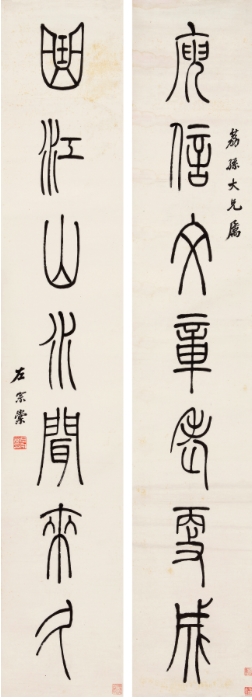 荔孫大兄屬
庾信文章老更成
曲江山水聞來久
左宗棠